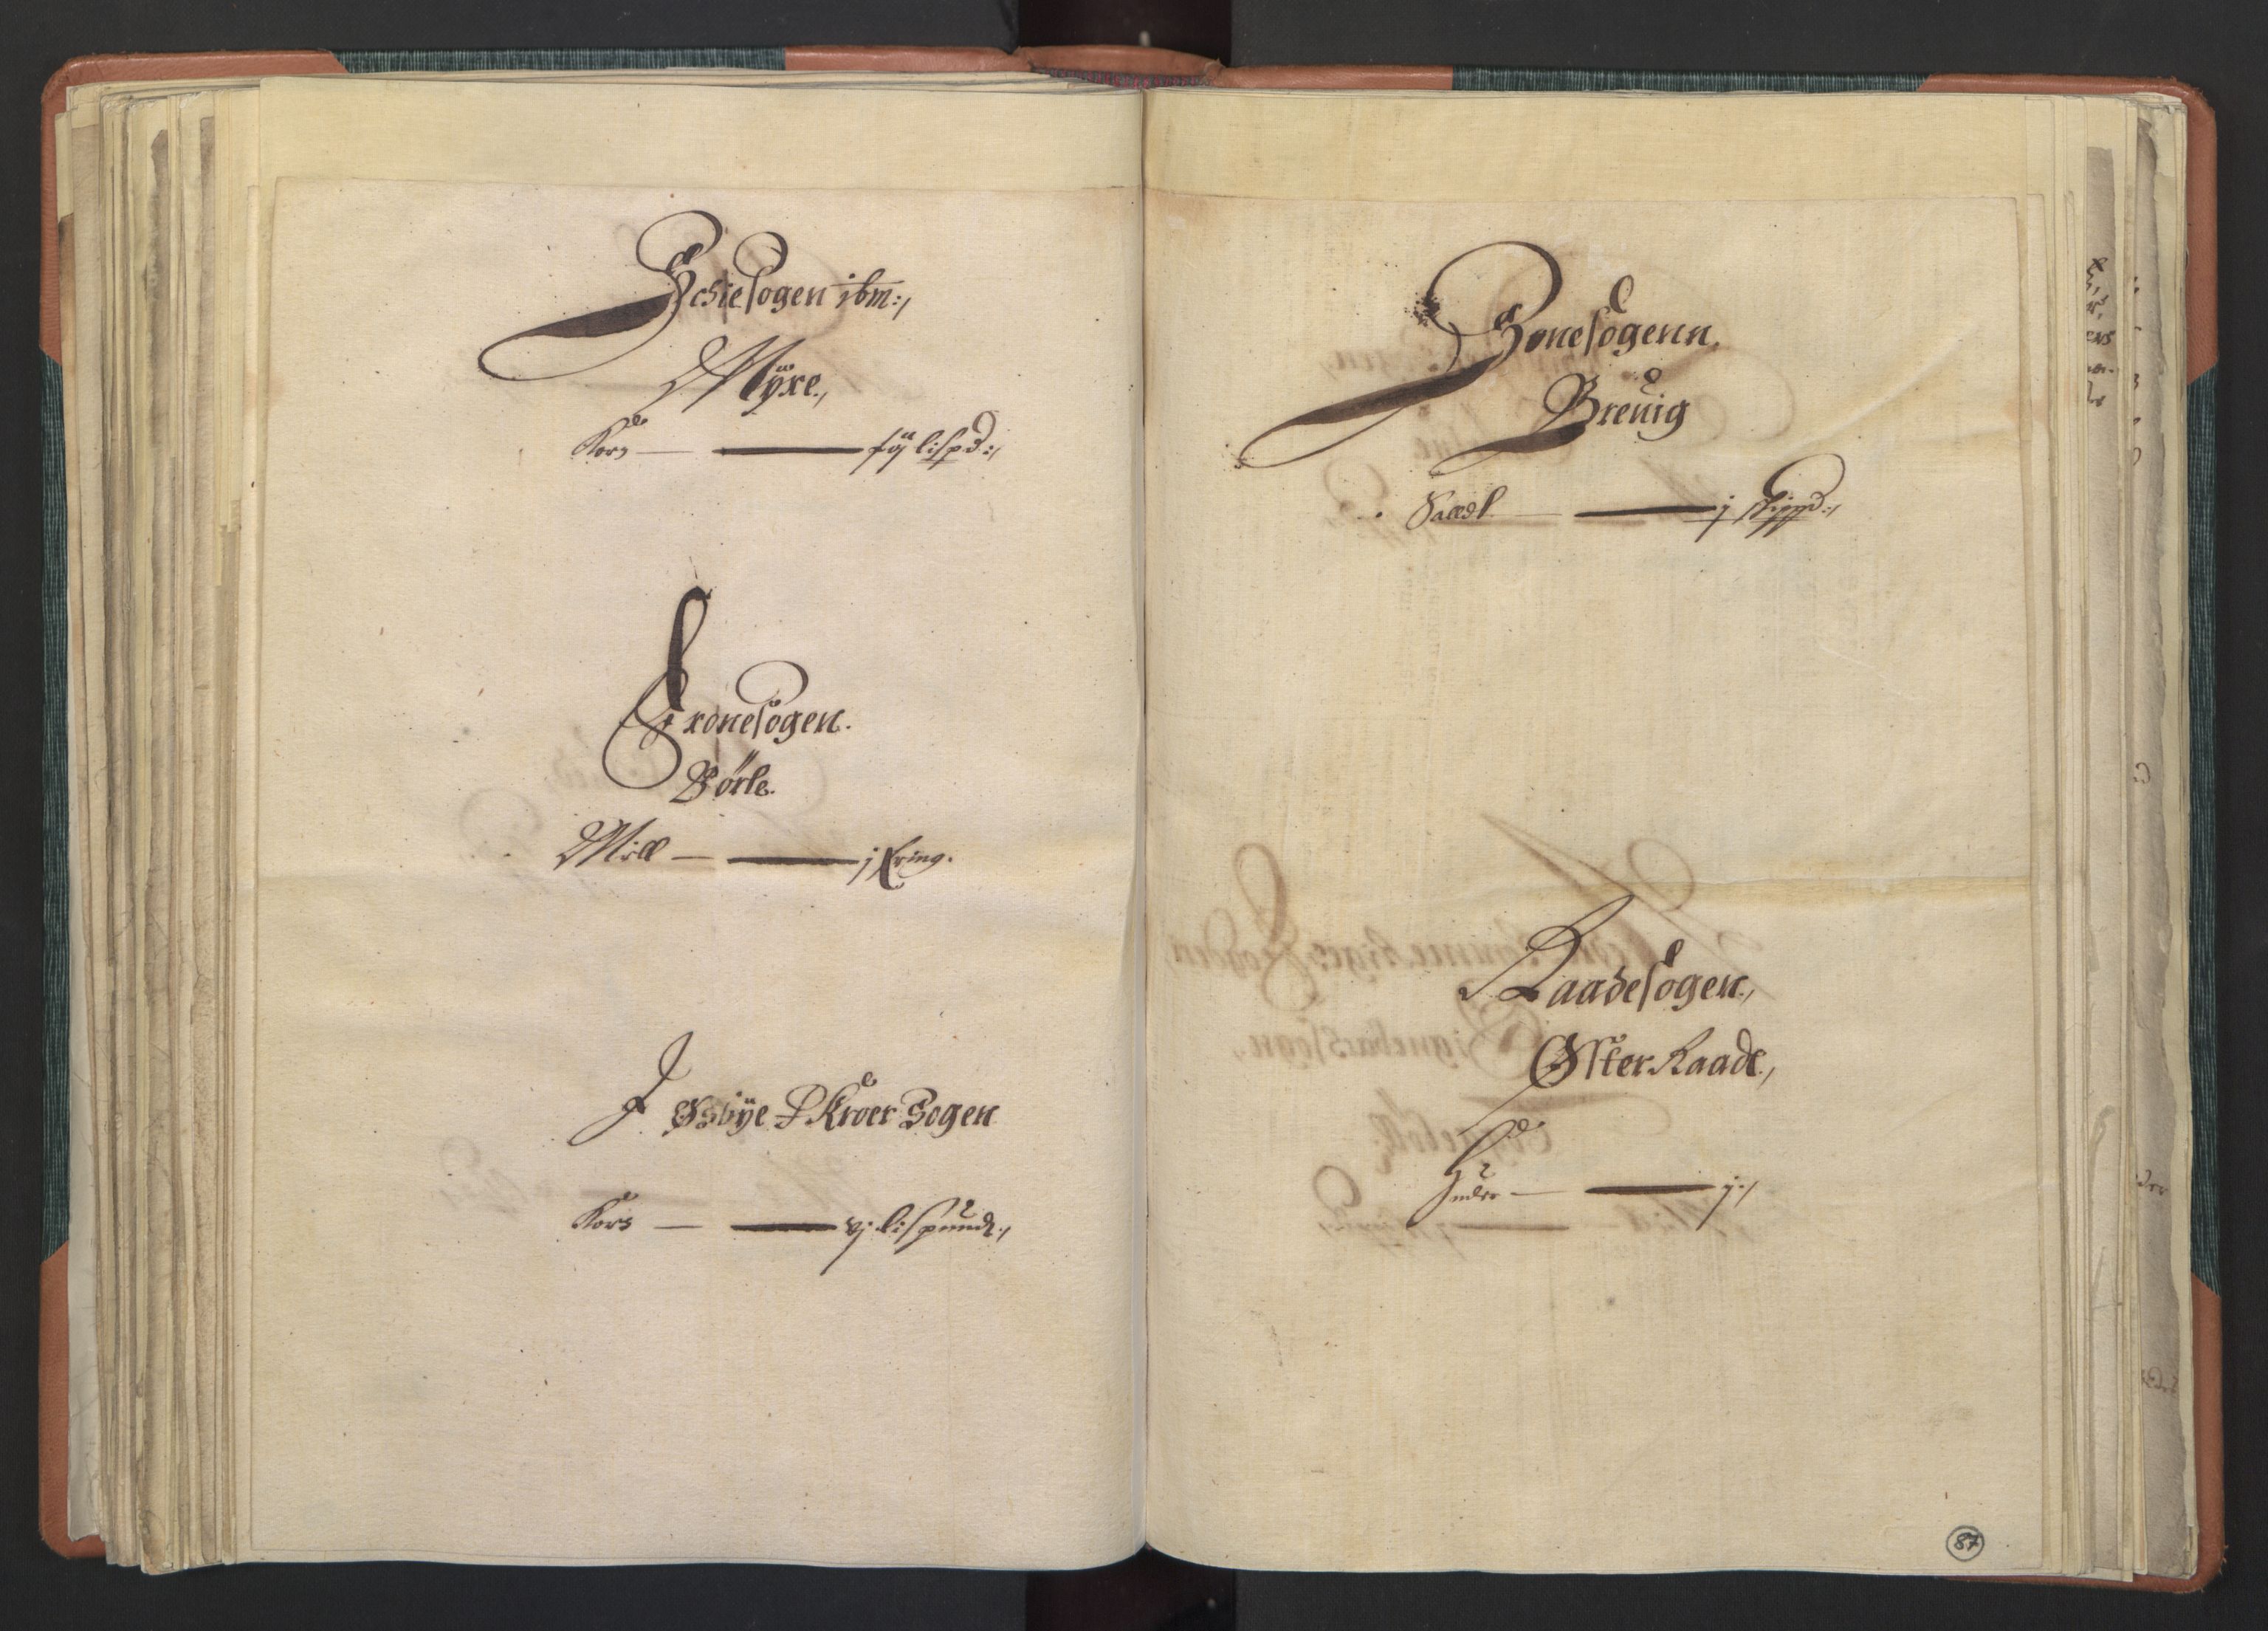 Schiesogen ibm:/
Myre./
Korn — iij lispd:/
Fronesogen.
Børle.
Mell — j fring.
J Øsbÿe & Kroer Sogen
Korn — vj lispund:/
Sonesogenn.
Breuig
Saedl — j skippd:/
Raadesogen./
Øster Raade./
Huder — j:/
87